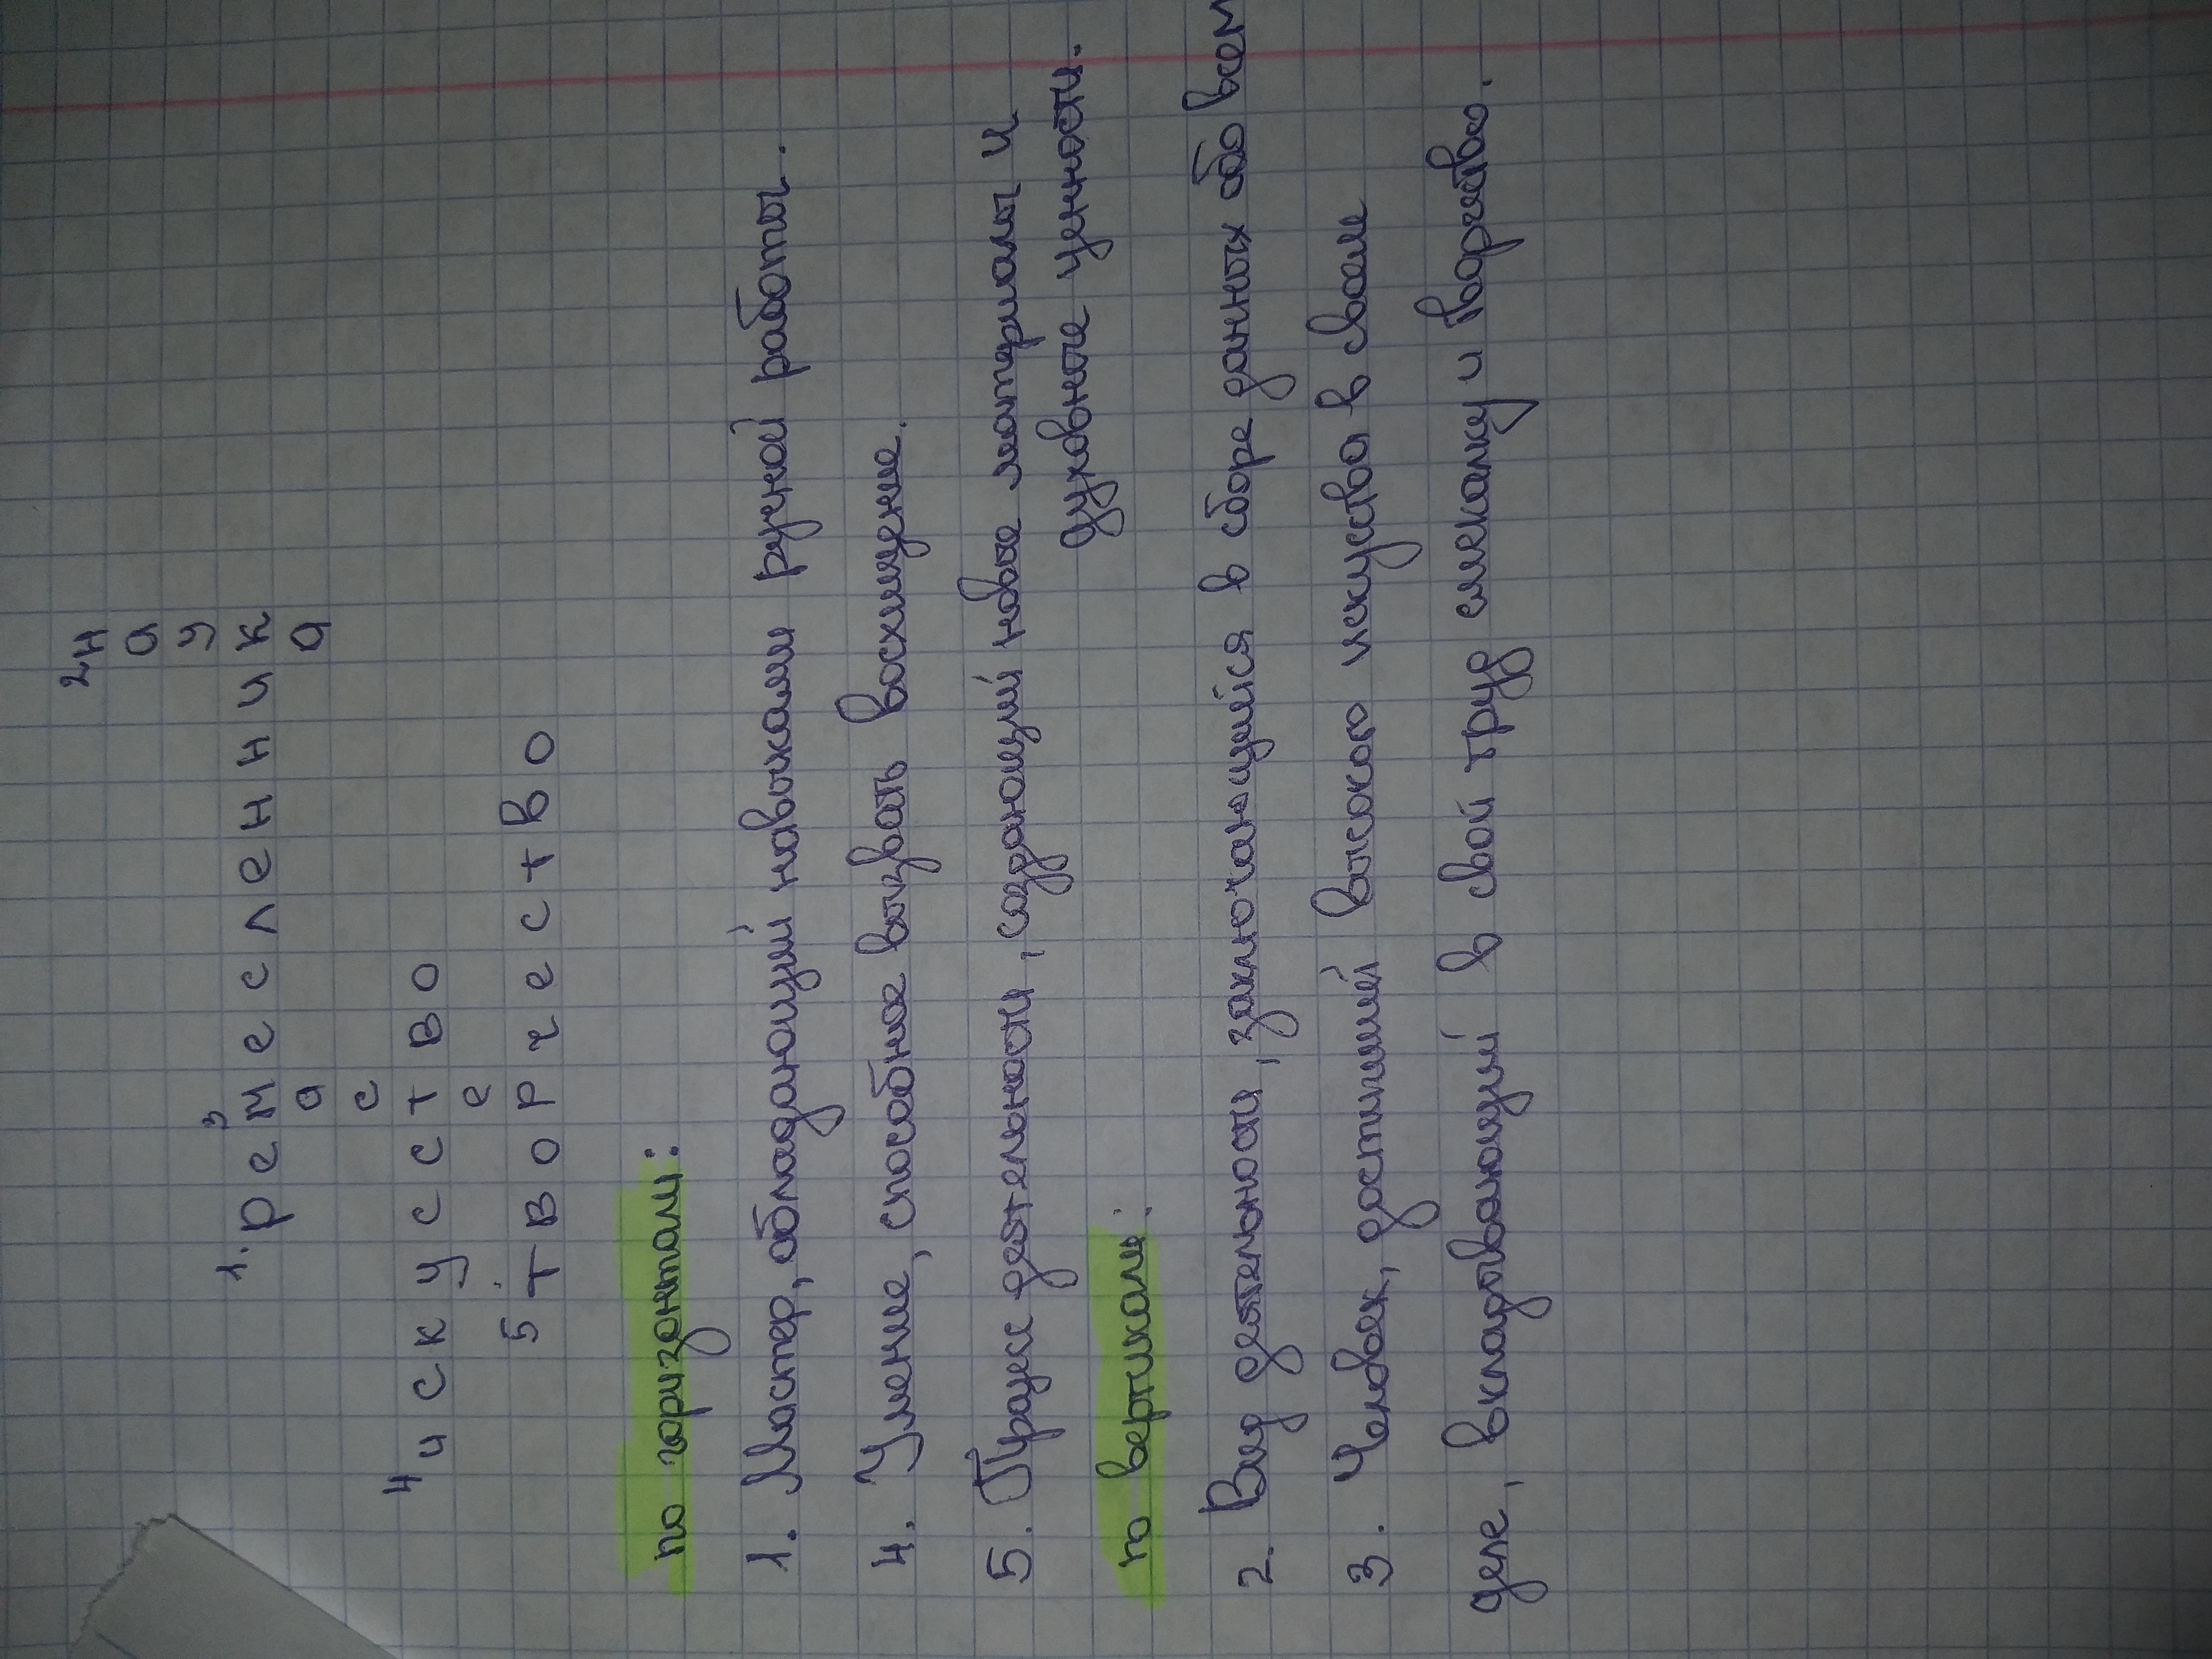 2н
а
у
1. ре³месленник
а а
с
4искусство
е
5творчество
по горизонтали:
1. Мастер, обладающий навыками ручной работы.
4. Умение, способное вызвать восхищение.
5. Процесс деятельности, создающий новые материалы и
духовные ценности.
по вертикали:
2. Вид деятельности, заключающийся в сборе данных обо всем
3. Человек, достигший высокого искуства в своем
деле, вкладовающий в свой труд смекалку и творчество.